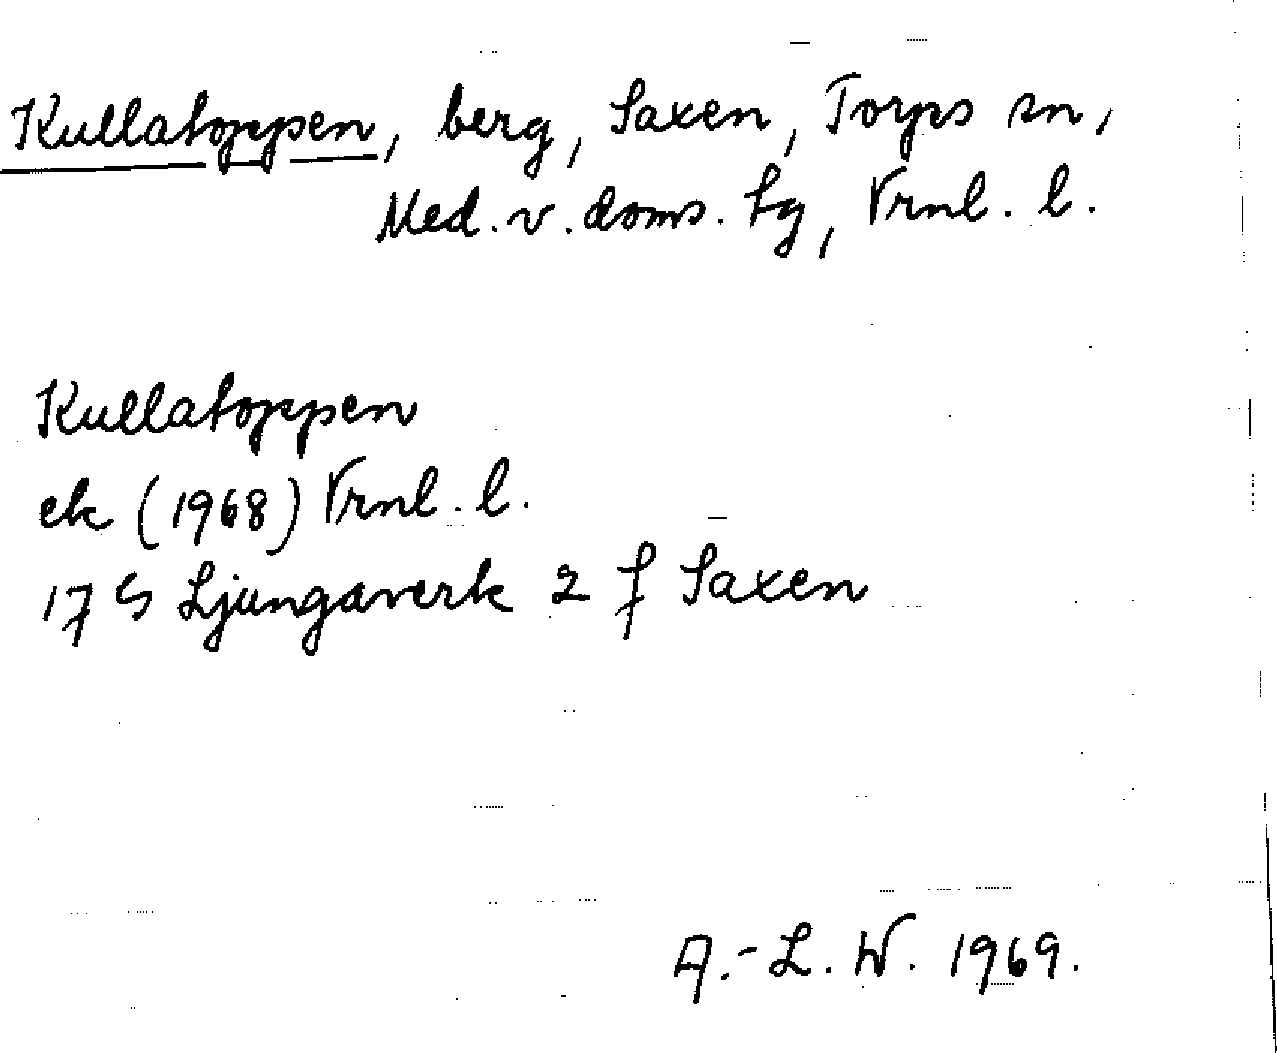 Kullatoppen, berg, Saxen, Torps sn,
Med. v. doms. tg, Vrnl. l.
Kullatoppen
ek (1968) Vrnl. l.
17 G Ljungaverk 2 f Saxen
A.-L. W. 1969.